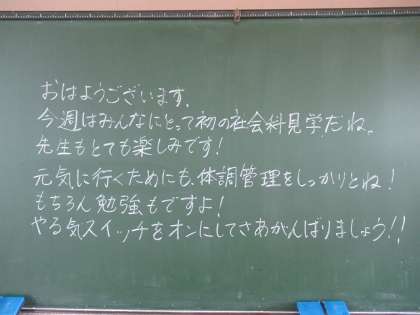 おはようございます。
今週はみんなにとって初の社会科見学だね。
先生もとても楽しみです！
元気に行くためにも、体調管理をしっかりとね！
もちろん勉強もですよ！
やる気スイッチをオンにしてさあがんばりましょう！！